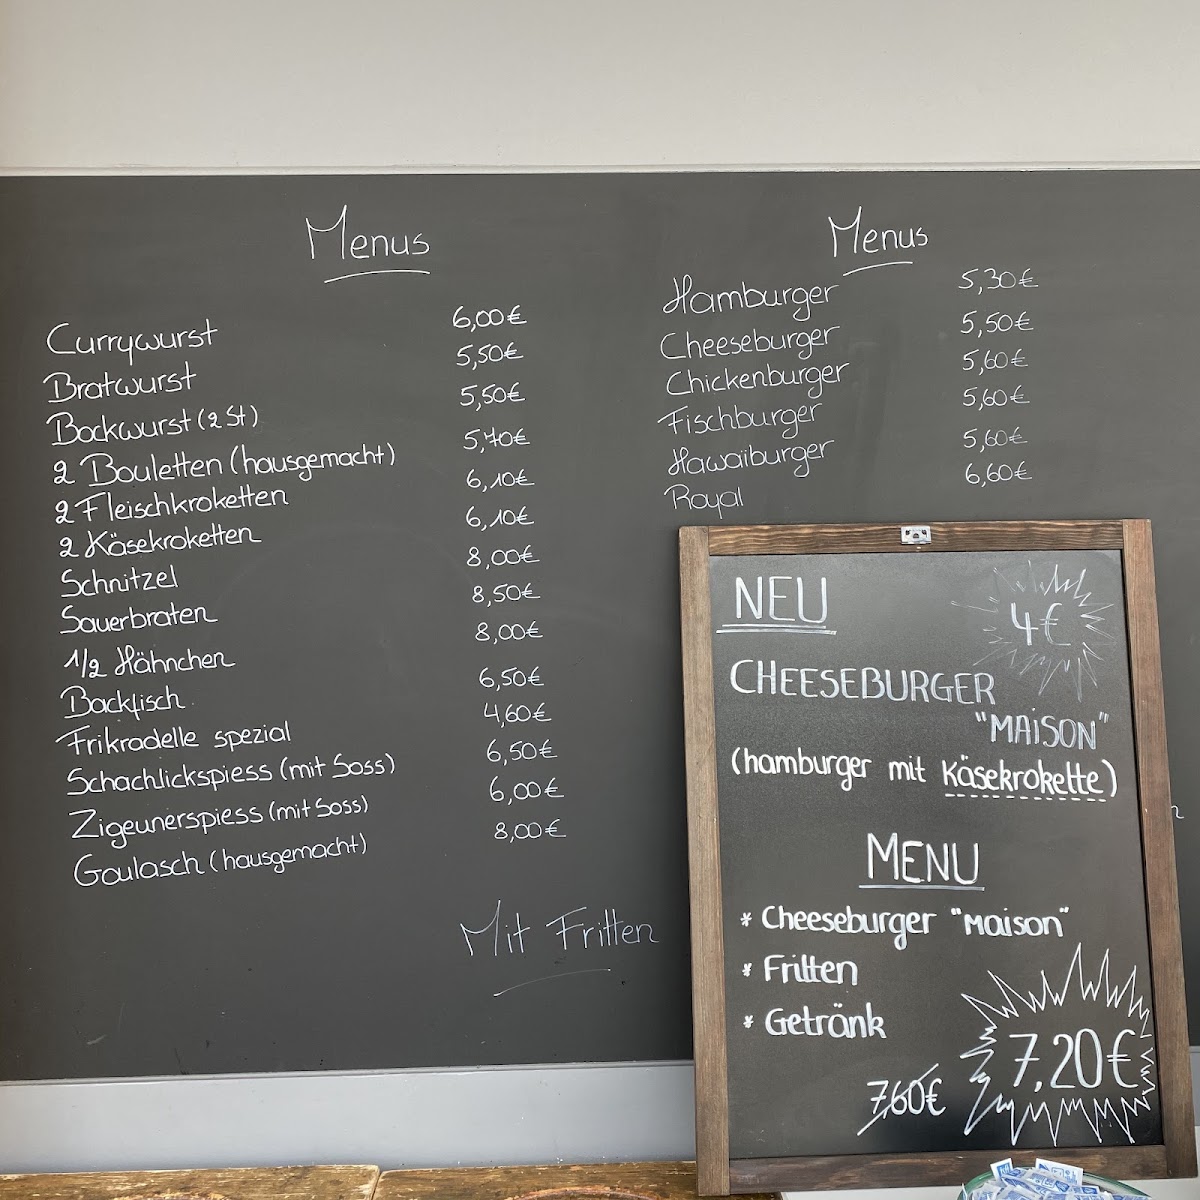 Menus
Currywurst 6,00€
Bratwurst 5,50€
Bockwurst (2 St) 5,50€
2 Bouletten (hausgemacht) 5,70€
2 Fleischkroketten 6,10€
2 Käsekroketten 6,10€
Schnitzel 8,00€
Sauerbraten 8,50€
1/2 Hähnchen 8,00€
Backfisch 6,50€
Frikradelle spezial 4,60€
Schachlickspiess (mit Soss) 6,50€
Zigeunerspiess (mit Soss) 6,00€
Goulasch (hausgemacht) 8,00€
Mit Fritten
Menus
Hamburger 5,30€
Cheeseburger 5,50€
Chickenburger 5,60€
Fischburger 5,60€
Hawaiburger 5,60€
Royal 6,60€
NEU
4€
CHEESEBURGER
"MAISON"
(hamburger mit Käsekrokette)
MENU
* Cheeseburger "Maison"
* Fritten
* Getränk
7,60€
7,20€